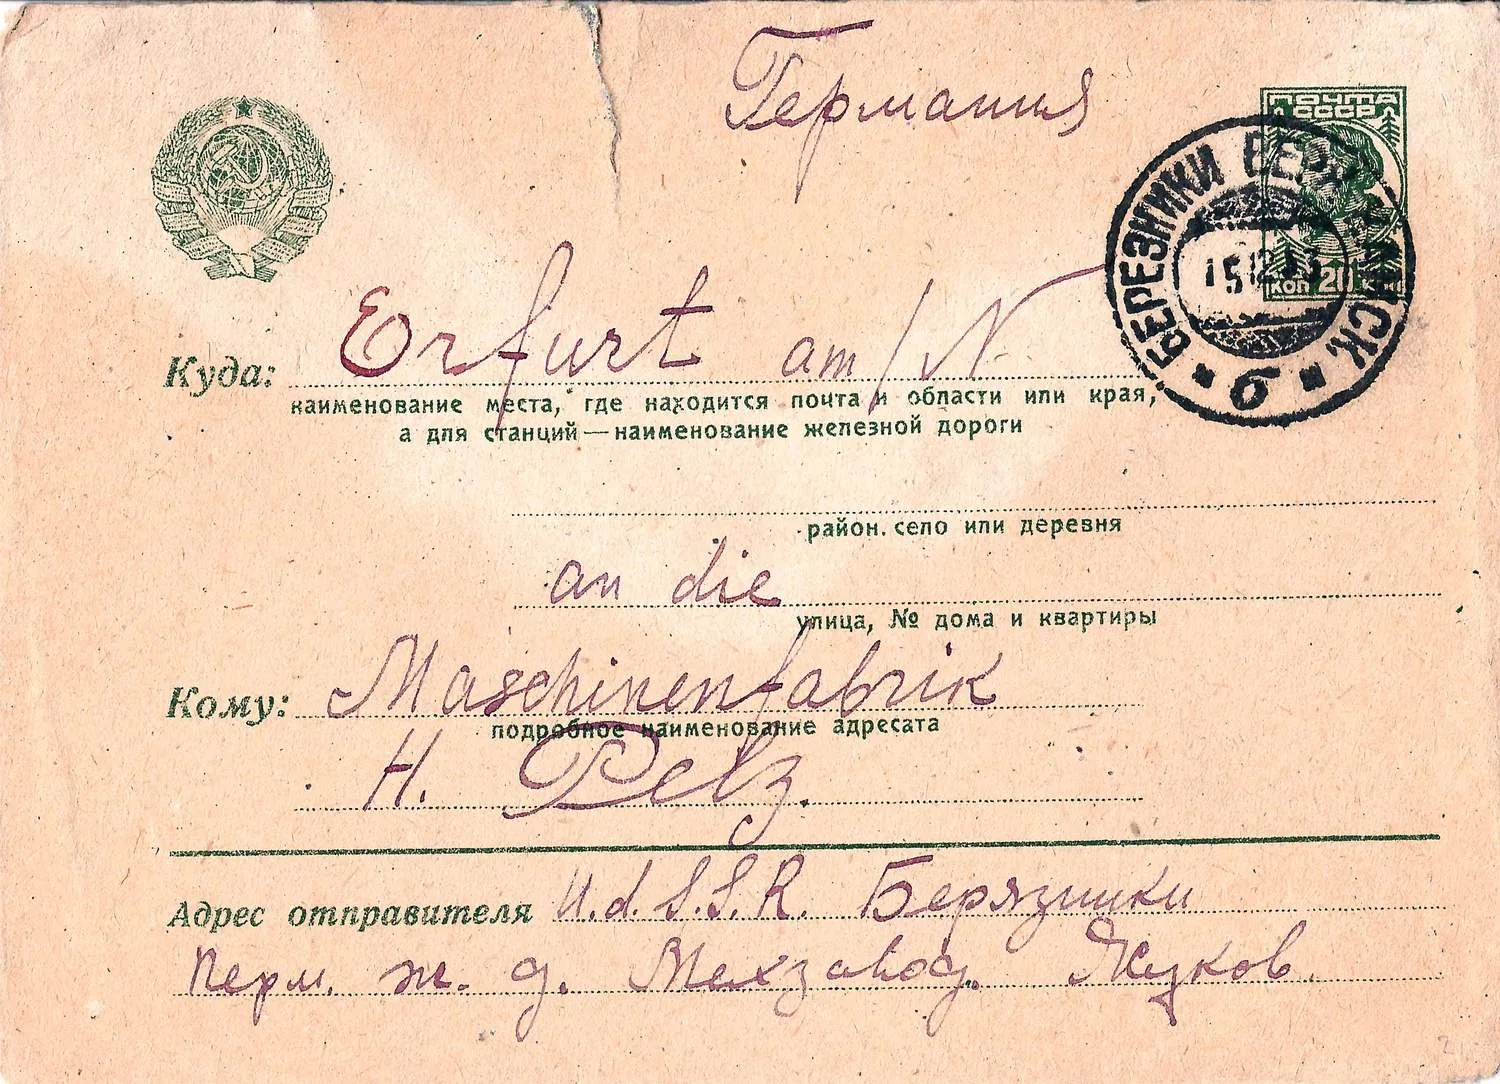 Германия
ПОЧТА
СССР
КОП 20 КОП
БЕРЕЗНИКИ ВЕРХ КАМСК.
15 12
б
Куда: Erfurt am/N
наименование места, где находится почта и области или края,
а для станций—наименование железной дороги
район, село или деревня
an die
улица, № дома и квартиры
Кому: Maschinenfabrik
подробное наименование адресата
H. Pelz.
Адрес отправителя U.d.S.S.R. Берязники
Перм. ж. д. Мехзавод. Жуков.